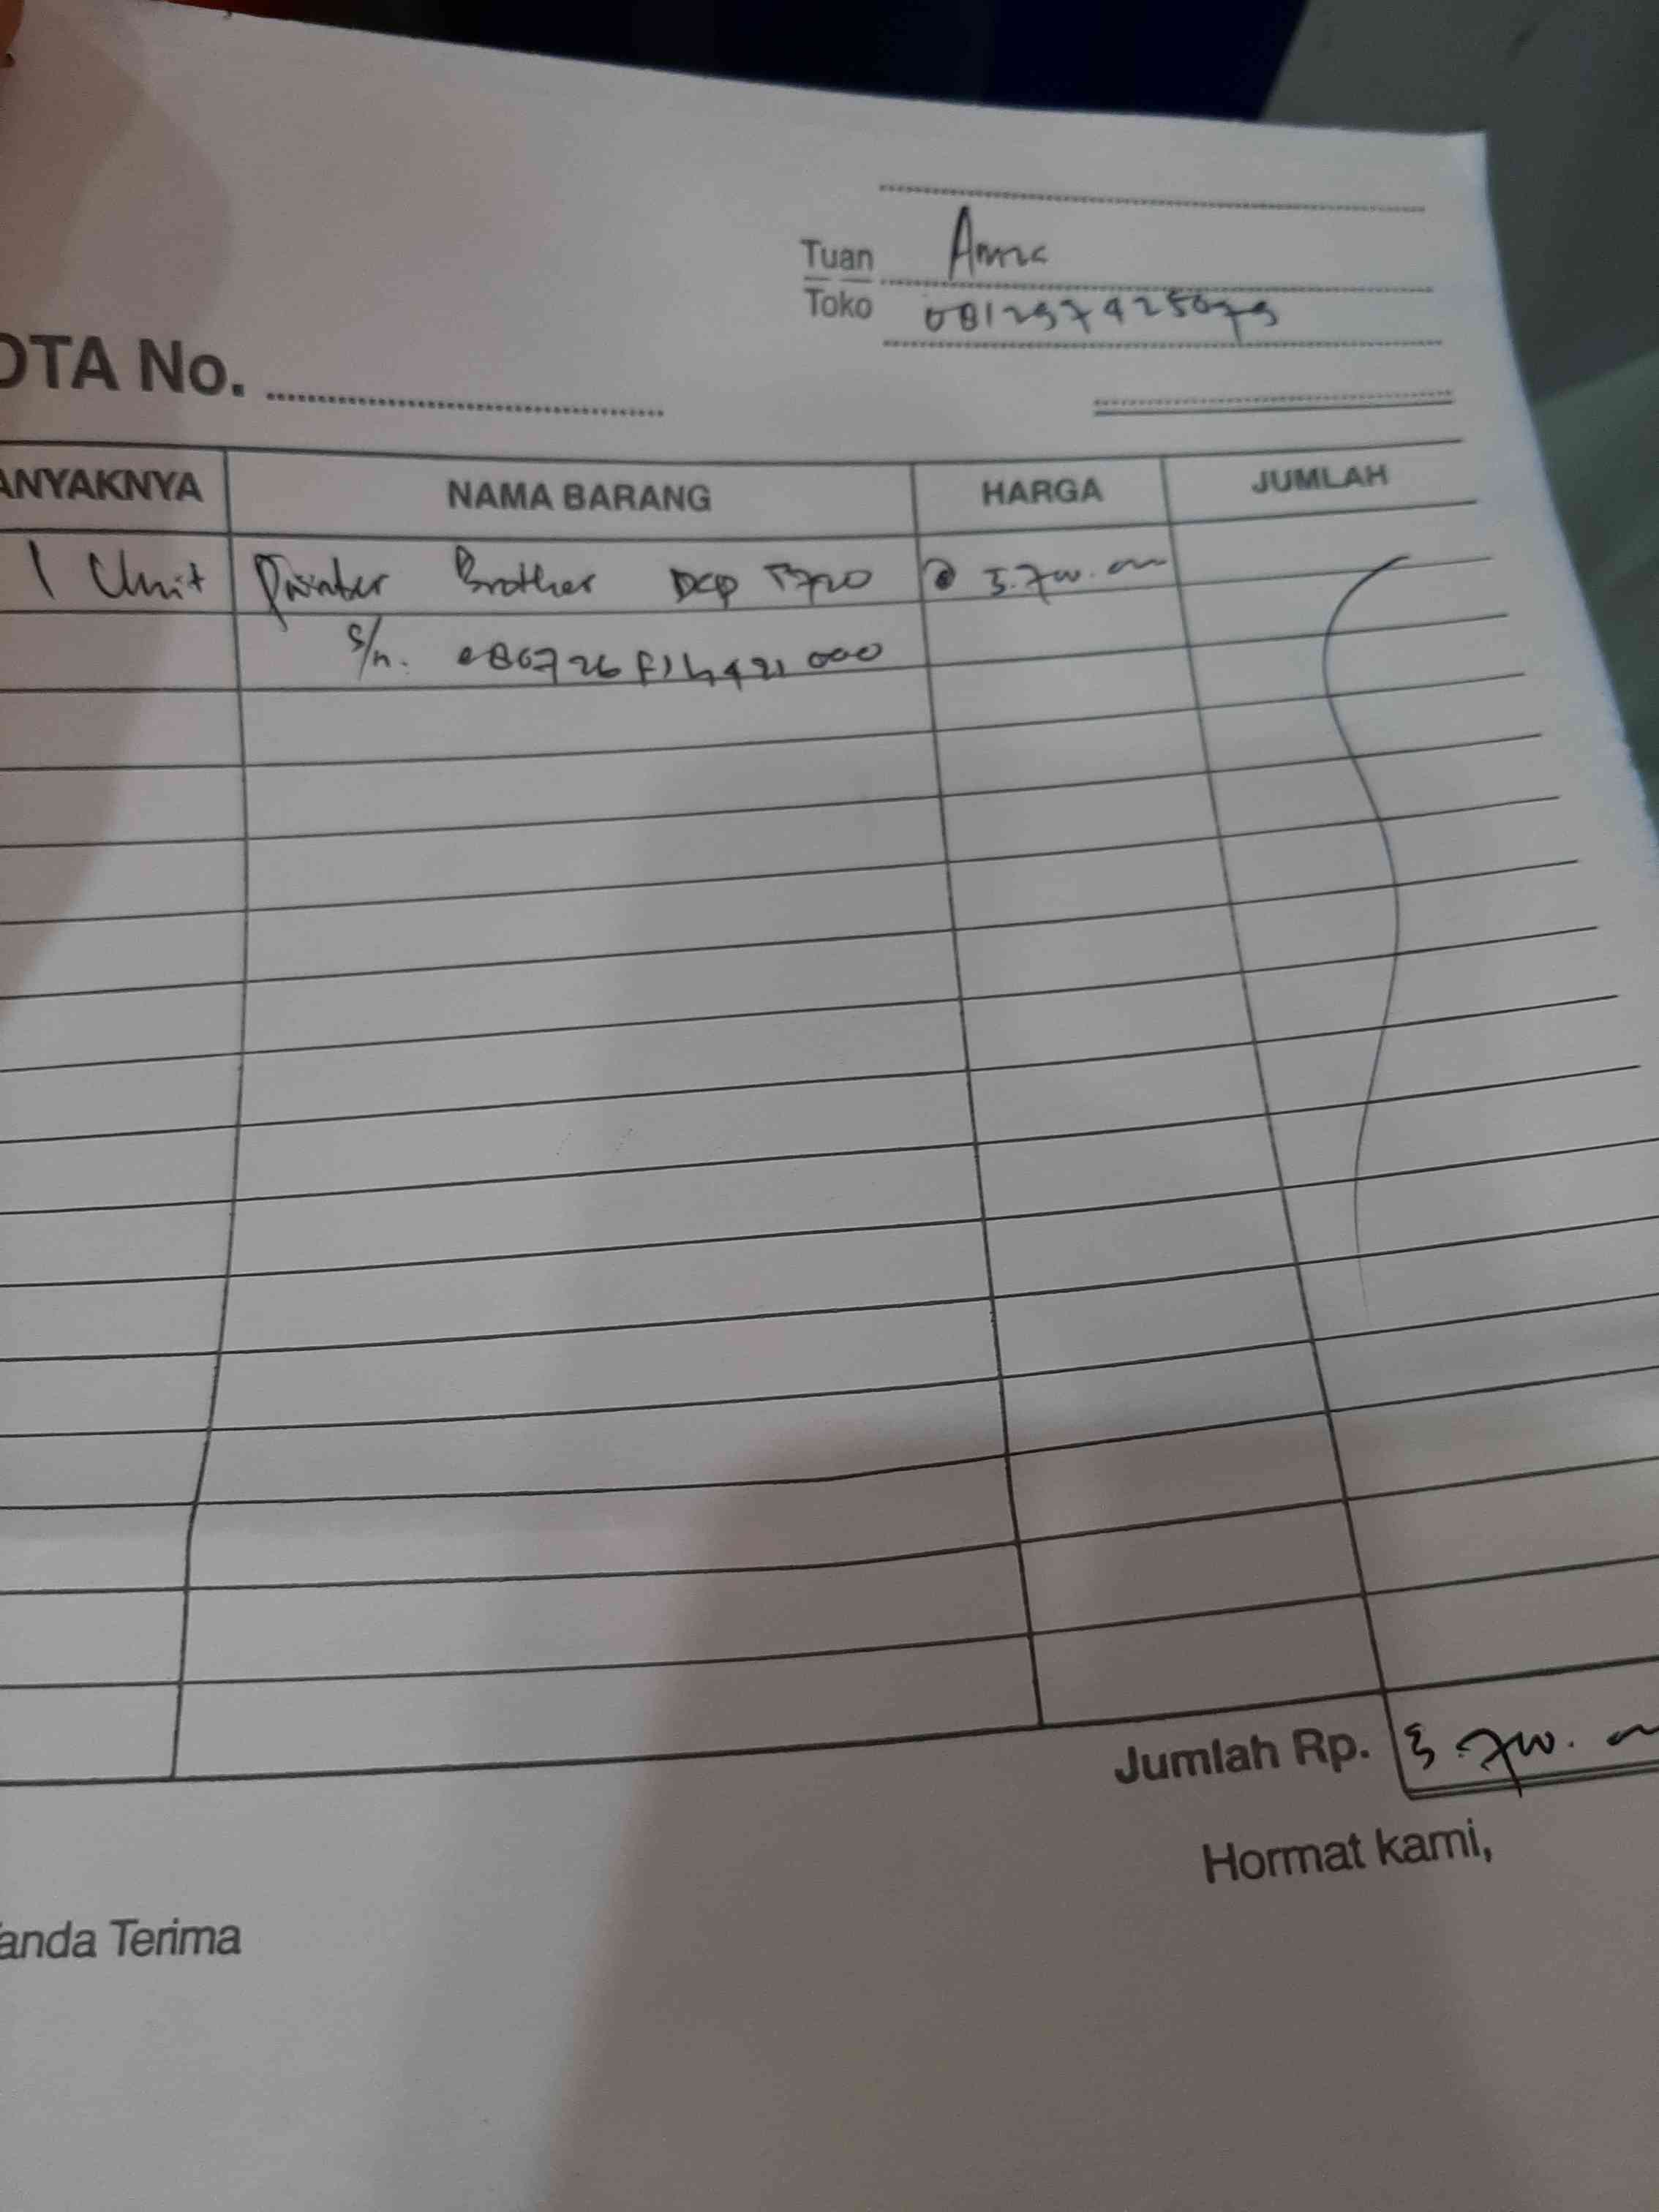 Tuan Anna
Toko 081297425079
OTA No.
ANYAKNYA NAMA BARANG HARGA JUMLAH
1 Unit Printer Brother DCP T720 @ 3.700.000
S/n.
Jumlah Rp. 3.700.
Hormat kami,
anda Terima